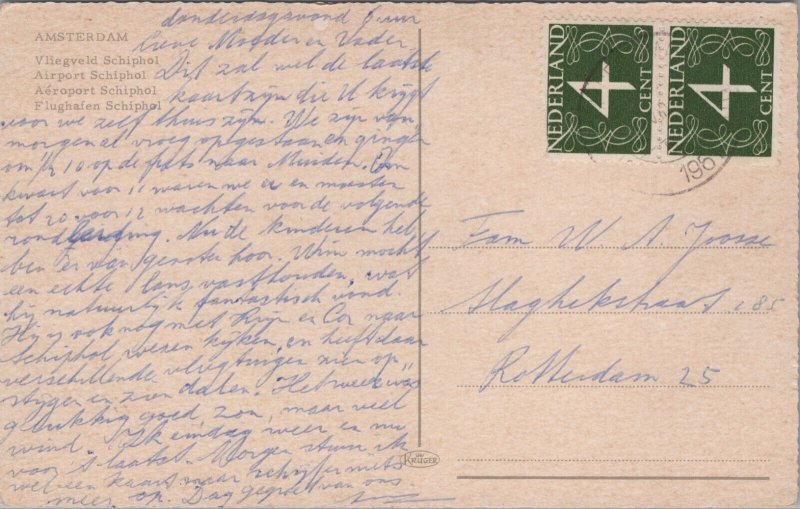 donderdagavond 8 uur
Lieve Moeder en Vader
AMSTERDAM
Vliegveld Schiphol
Airport Schiphol
Aéroport Schiphol
Flughafen Schiphol
Dit zal wel de laatste
kaart zijn die U krijgt
voor we zelf thuis zijn. We zijn van
morgen al vroeg opgestaan en gingen
om 1/2 10 op de fiets naar Muiden. Om
kwart voor 11 waren we er en moesten
tot 20 voor 12 wachten voor de volgende
rond ging. Nu de kinderen heb
ben er van genoten hoor. Wim mocht
een echte lans vasthouden, wat
hij natuurlijk fantastisch vond.
Hij is ook nog met en Cor naar
Schiphol wezen kijken, en heeft daar
verschillende vliegtuigen zien op
stijgen en zien dalen. Het weer was
gelukkig goed zon, maar veel
wind. Ik eindig weer en nu
voor 't laatst. Morgen stuur ik
wel een kaart maar schrijf er niets
meer op. Dag gegroet van ons
NEDERLAND
4
CENT
NEDERLAND
4
CENT
195
Fam W A Joosse
Slaghekstraat 185
Rotterdam 25
KRÜGER